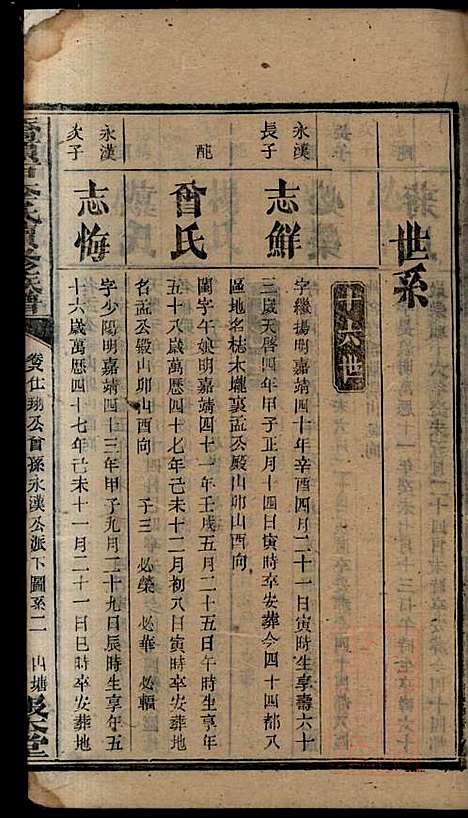 世系
六世
永漢
長子
志鮮
字繼揚明嘉靖四十年辛酉四月二十一日寅時生享壽六十
三歲天啓四年甲子正月十四日寅時卒安葬今四十四都八
區地名梽木壠裏孟公殿山卯山酉向
配
曾氏
蘭字午娘明嘉靖四十一年壬戌五月二十五日午時生享
五十八歲萬歷四十七年己未十二月初八日寅時卒安葬地
名孟公殿山卯山酉向　子三　必榮　必華　必輻
永漢
次子
志悔
字少陽明嘉靖四十三年甲子九月二十九日辰時生享年五
十六歲萬歷四十七年己未十一月二十一日巳時卒安葬地
氏續修族譜
卷 仕翔公首孫永漢公派下圖系二
山塘
堂